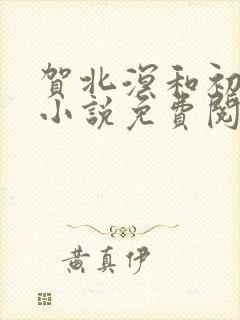 賀北溟和初
小說免費閱
黃真伊